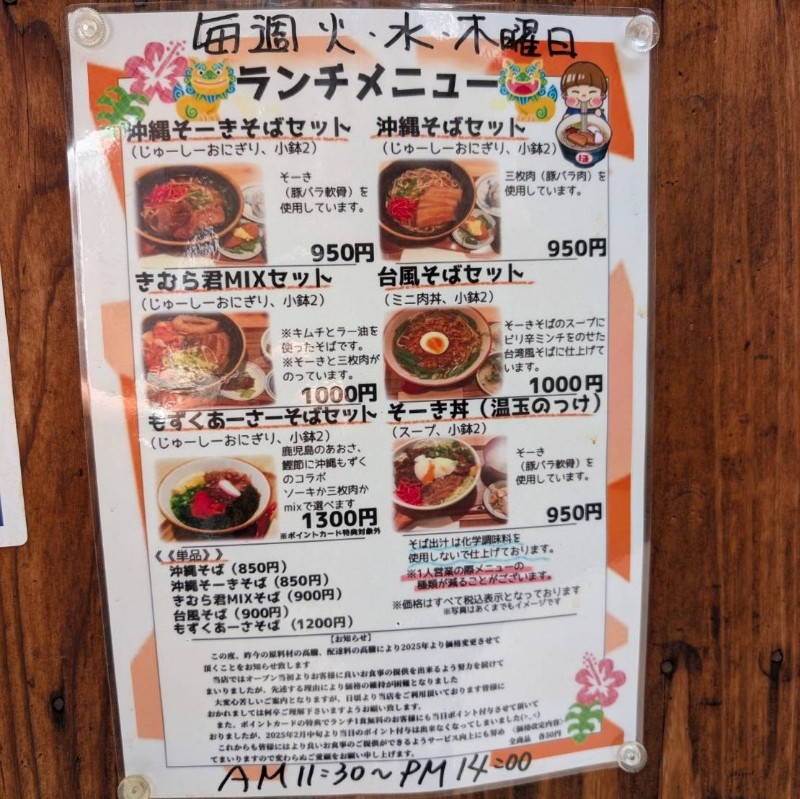 毎週火・水・木曜日
ランチメニュー
沖縄そーきそばセット
(じゅーしーおにぎり、小鉢2)
そーき
(豚バラ軟骨)を
使用しています。
950円
沖縄そばセット
(じゅーしーおにぎり、小鉢2)
三枚肉(豚バラ肉)を
使用しています。
950円
きむら君MIXセット
(じゅーしーおにぎり、小鉢2)
※キムチとラー油を
使ったそばです。
※そーきと三枚肉が
のっています。
1000円
台風そばセット
(ミニ肉丼、小鉢2)
そーきそばのスープに
ピリ辛ミンチをのせた
台湾風そばに仕上げて
います。
1000円
もずくあーさーそばセット
(じゅーしーおにぎり、小鉢2)
鹿児島のあおさ、
鰹節に沖縄もずく
のコラボ
ソーキか三枚肉か
mixで選べます
1300円
※ポイントカード特典対象外
そーき丼(温玉のっけ)
(スープ、小鉢2)
そーき
(豚バラ軟骨)を
使用しています。
950円
《《単品》》
沖縄そば(850円)
沖縄そーきそば(850円)
きむら君MIXそば(900円)
台風そば(900円)
もずくあーさそば(1200円)
そば出汁は化学調味料を
使用しないで仕上げております。
※1人営業の際メニューの
種類が減ることがございます。
※価格はすべて税込表示となっております
※写真はあくまでもイメージです
【お知らせ】
この度、昨今の原料材の高騰、配達料の高騰により2025年より価格変更させて
頂くことをお知らせ致します
当店ではオープン当初よりお客様に良いお食事の提供を出来るよう努力を続けて
まいりましたが、先述する理由により価格の維持が困難となりました
大変心苦しいご案内となりますが、日頃より当店をご利用頂いております皆様に
おかれましては何卒ご理解下さいますようお願い致します。
また、ポイントカードの特典でランチ1食無料のお客様にも当日ポイント付与させて頂いて
おりましたが、2025年2月中旬より当日のポイント付与は出来なくなってしまいました(>_<)
これからも皆様にはより良いお食事のご提供ができるようサービス向上にも努め
てまいりますので変わらぬご愛顧をお願い申し上げます。
(価格改定内容)
全商品 各50円
AM11:30～PM14:00